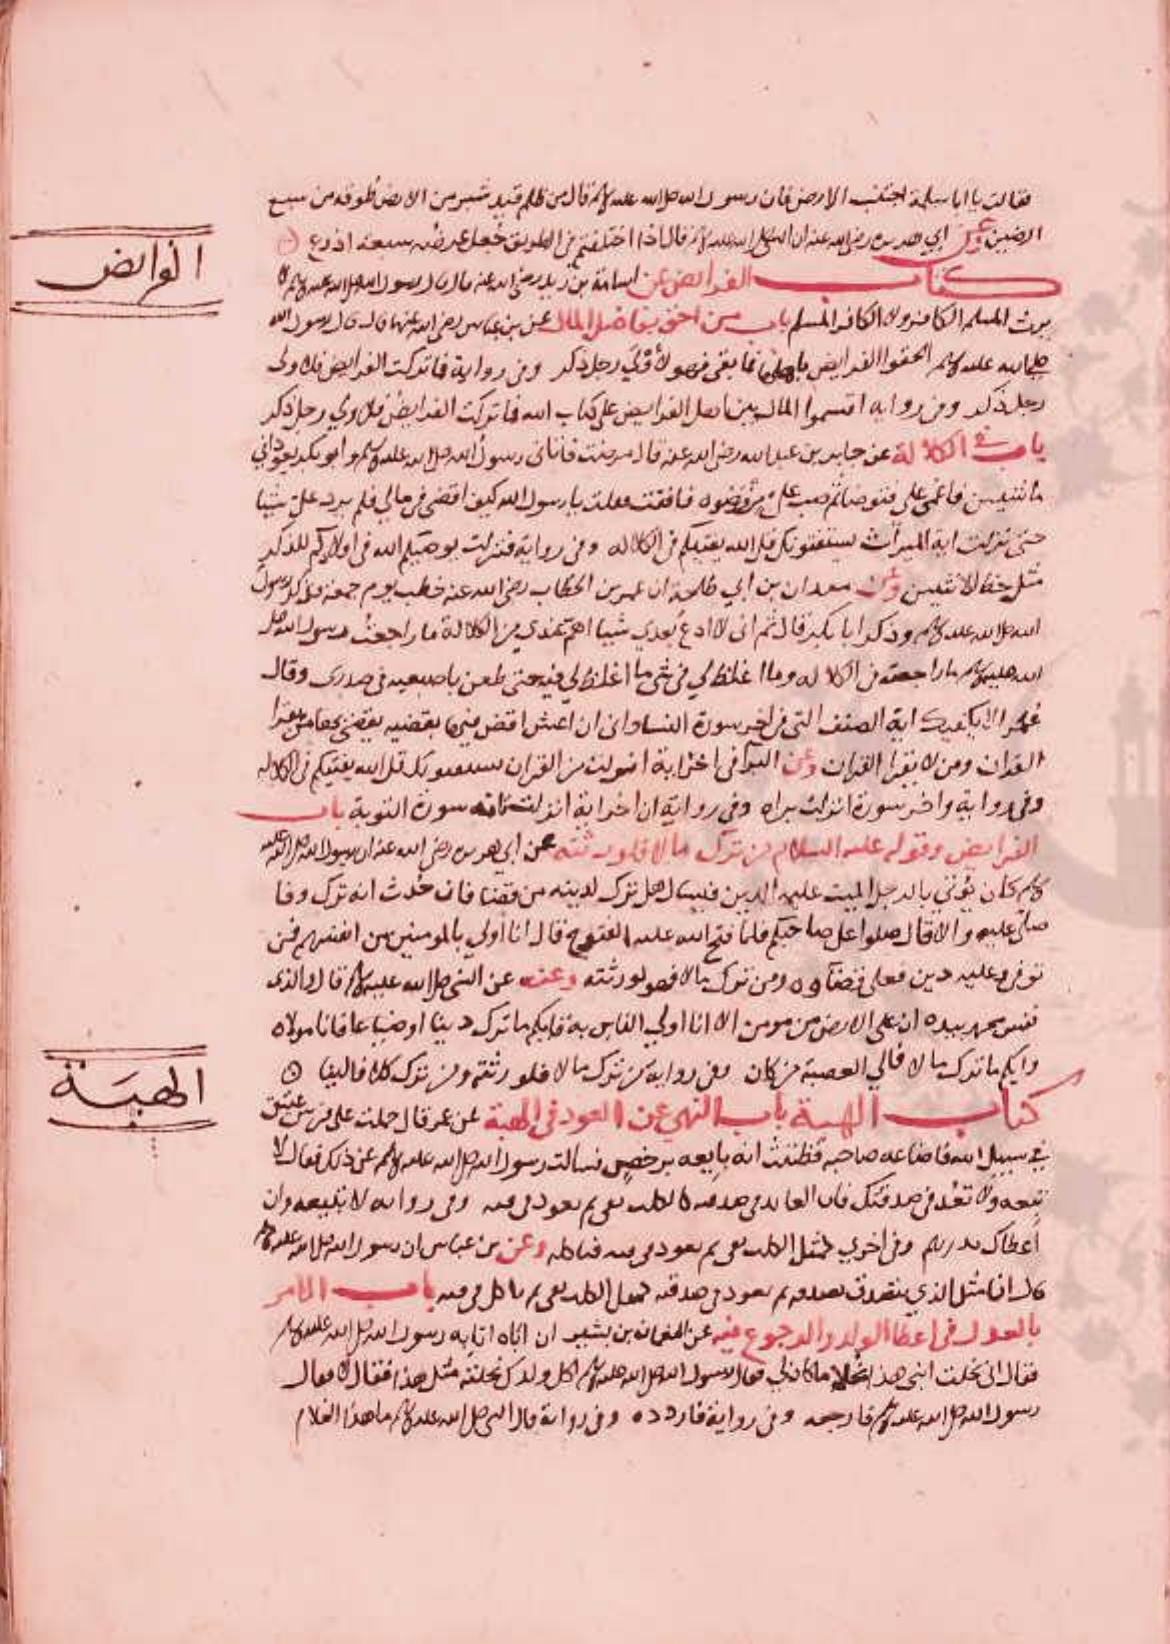 فقالت يا ابا سلمة اجتنب الارض فان رسول الله صلى الله عليه وسلم قال من ظلم قيد شبر من الارض طوقه من سبع
ارضين وعن ابي هريره رضي الله عنه ان النبي صلى الله عليه وسلم قال اذا اختلفتم في الطريق جعل عرضه سبعة اذرع
الفرايض
كتاب الفرايض عن اسامة بن زيد رضي الله عنه قال قال رسول الله صلى الله عليه وسلم لا
يرث المسلم الكافر ولا الكافر المسلم باب من احق بفاضل المال عن بن عباس رضي الله عنهما قال قال رسول الله
صلى الله عليه وسلم الحقوا الفرايض باهلها فما بقي فهو لاولى رجل ذكر وفي رواية فما تركت الفرايض فلاولى
رجل ذكر وفي روايه اقسموا المال بين اهل الفرايض على كتاب الله فما تركت الفرايض فلاولي رجل ذكر
باب في الكلالة عن جابر بن عبد الله رضي الله عنه قال مرضت فاتاني رسول الله صلى الله عليه وسلم وابو بكر يعوداني
ماشيين فاغمي علي فتوضا ثم صب علي من وضوه فافقت فقلت يا رسول الله كيف اقضي في مالي فلم يرد علي شيا
حتى نزلت اية الميراث يستفتونك قل الله يفتيكم في الكلاله وفي رواية فنزلت يوصيكم الله في اولادكم للذكر
مثل حظ الانثيين وعن معدان بن ابي طلحة ان عمر بن الخطاب رضي الله عنه خطب يوم جمعه فذكر رسول
الله صلى الله عليه وسلم وذكر ابا بكر قال ثم اني لا ادع بعدي شيا اهم عندي من الكلالة ما راجعت رسول الله صلى
الله عليه وسلم ما راجعته في الكلاله وما اغلظ لي في شي ما اغلظ لي فيه حتى طعن باصبعه في صدري وقال
عمر الا يكفيك اية الصيف التي في اخر سورة النسا واني ان اعش اقض فيها بقضيه يقضي بها من يقرا
القران ومن لا يقرا القران وعن البرا في اخر اية انزلت من القران يستفتونك قل الله يفتيكم في الكلاله
وفي رواية واخر سورة انزلت براه وفي رواية ان اخر اية انزلت سورة التوبة باب
الفرايض وقوله عليه السلام من ترك مالا فلورثته عن ابي هريره رضي الله عنه ان رسول الله صلى الله عليه
وسلم كان يؤتي بالرجل الميت عليه الدين فيسال هل ترك لدينه من قضا فان حدث انه ترك وفا
صلى عليه والا قال صلوا على صاحبكم فلما فتح الله عليه الفتوح قال انا اولي بالمومنين من انفسهم فمن
توفي وعليه دين فعلي قضاوه ومن ترك مالا فهو لورثته وعنه عن النبي صلى الله عليه وسلم قال والذي
نفس محمد بيده ان على الارض من مومن الا انا اولي الناس به فايكم ما ترك دينا او ضياعا فانا مولاه
الهبة
وايكم ما ترك مالا فالي العصبة من كان وفي رواية من ترك مالا فلورثته ومن ترك كلا فالينا
كتاب الهبة باب النهي عن العود في الهبة عن عمر قال حملت على فرس عتيق
في سبيل الله فاضاعه صاحبه فظننت انه بايعه برخص فسالت رسول الله صلى الله عليه وسلم عن ذلك فقال لا
تبعه ولا تعد في صدقتك فان العايد في صدقته كالكلب يقي ثم يعود في قيه وفي روايه لا تبتعه وان
اعطاك بدرهم وفي اخري كمثل الكلب يقي ثم يعود في قيه فياكله وعن بن عباس ان رسول الله صلى الله عليه وسلم
قال انما مثل الذي يتصدق بصدقه ثم يعود في صدقته كمثل الكلب يقي ثم ياكل قيه باب الامر
بالعدل في اعطا الولد والرجوع فيه عن النعمان بن بشير ان اباه اتا به رسول الله صلى الله عليه وسلم
فقال اني نحلت ابني هذا غلاما كان لي فقال رسول الله صلى الله عليه وسلم اكل ولدك نحلته مثل هذا فقال لا فقال
رسول الله صلى الله عليه وسلم فارجعه وفي رواية فاردده وفي رواية قال النبي صلى الله عليه وسلم ما هذا الغلام